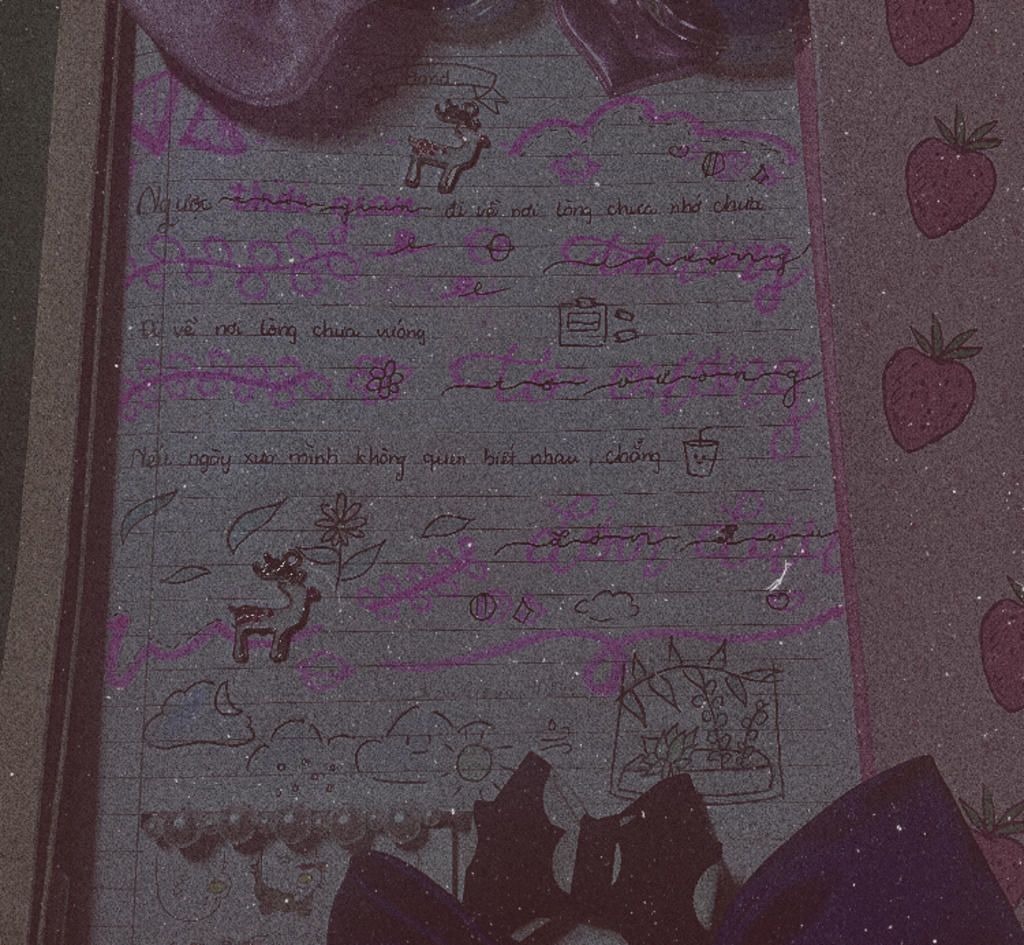 Ngược thời gian đi về nơi lòng chưa nhớ chưa
thương
Đi về nơi lòng chưa vướng
tơ vương
Nếu ngày xưa mình không quen biết nhau, chẳng